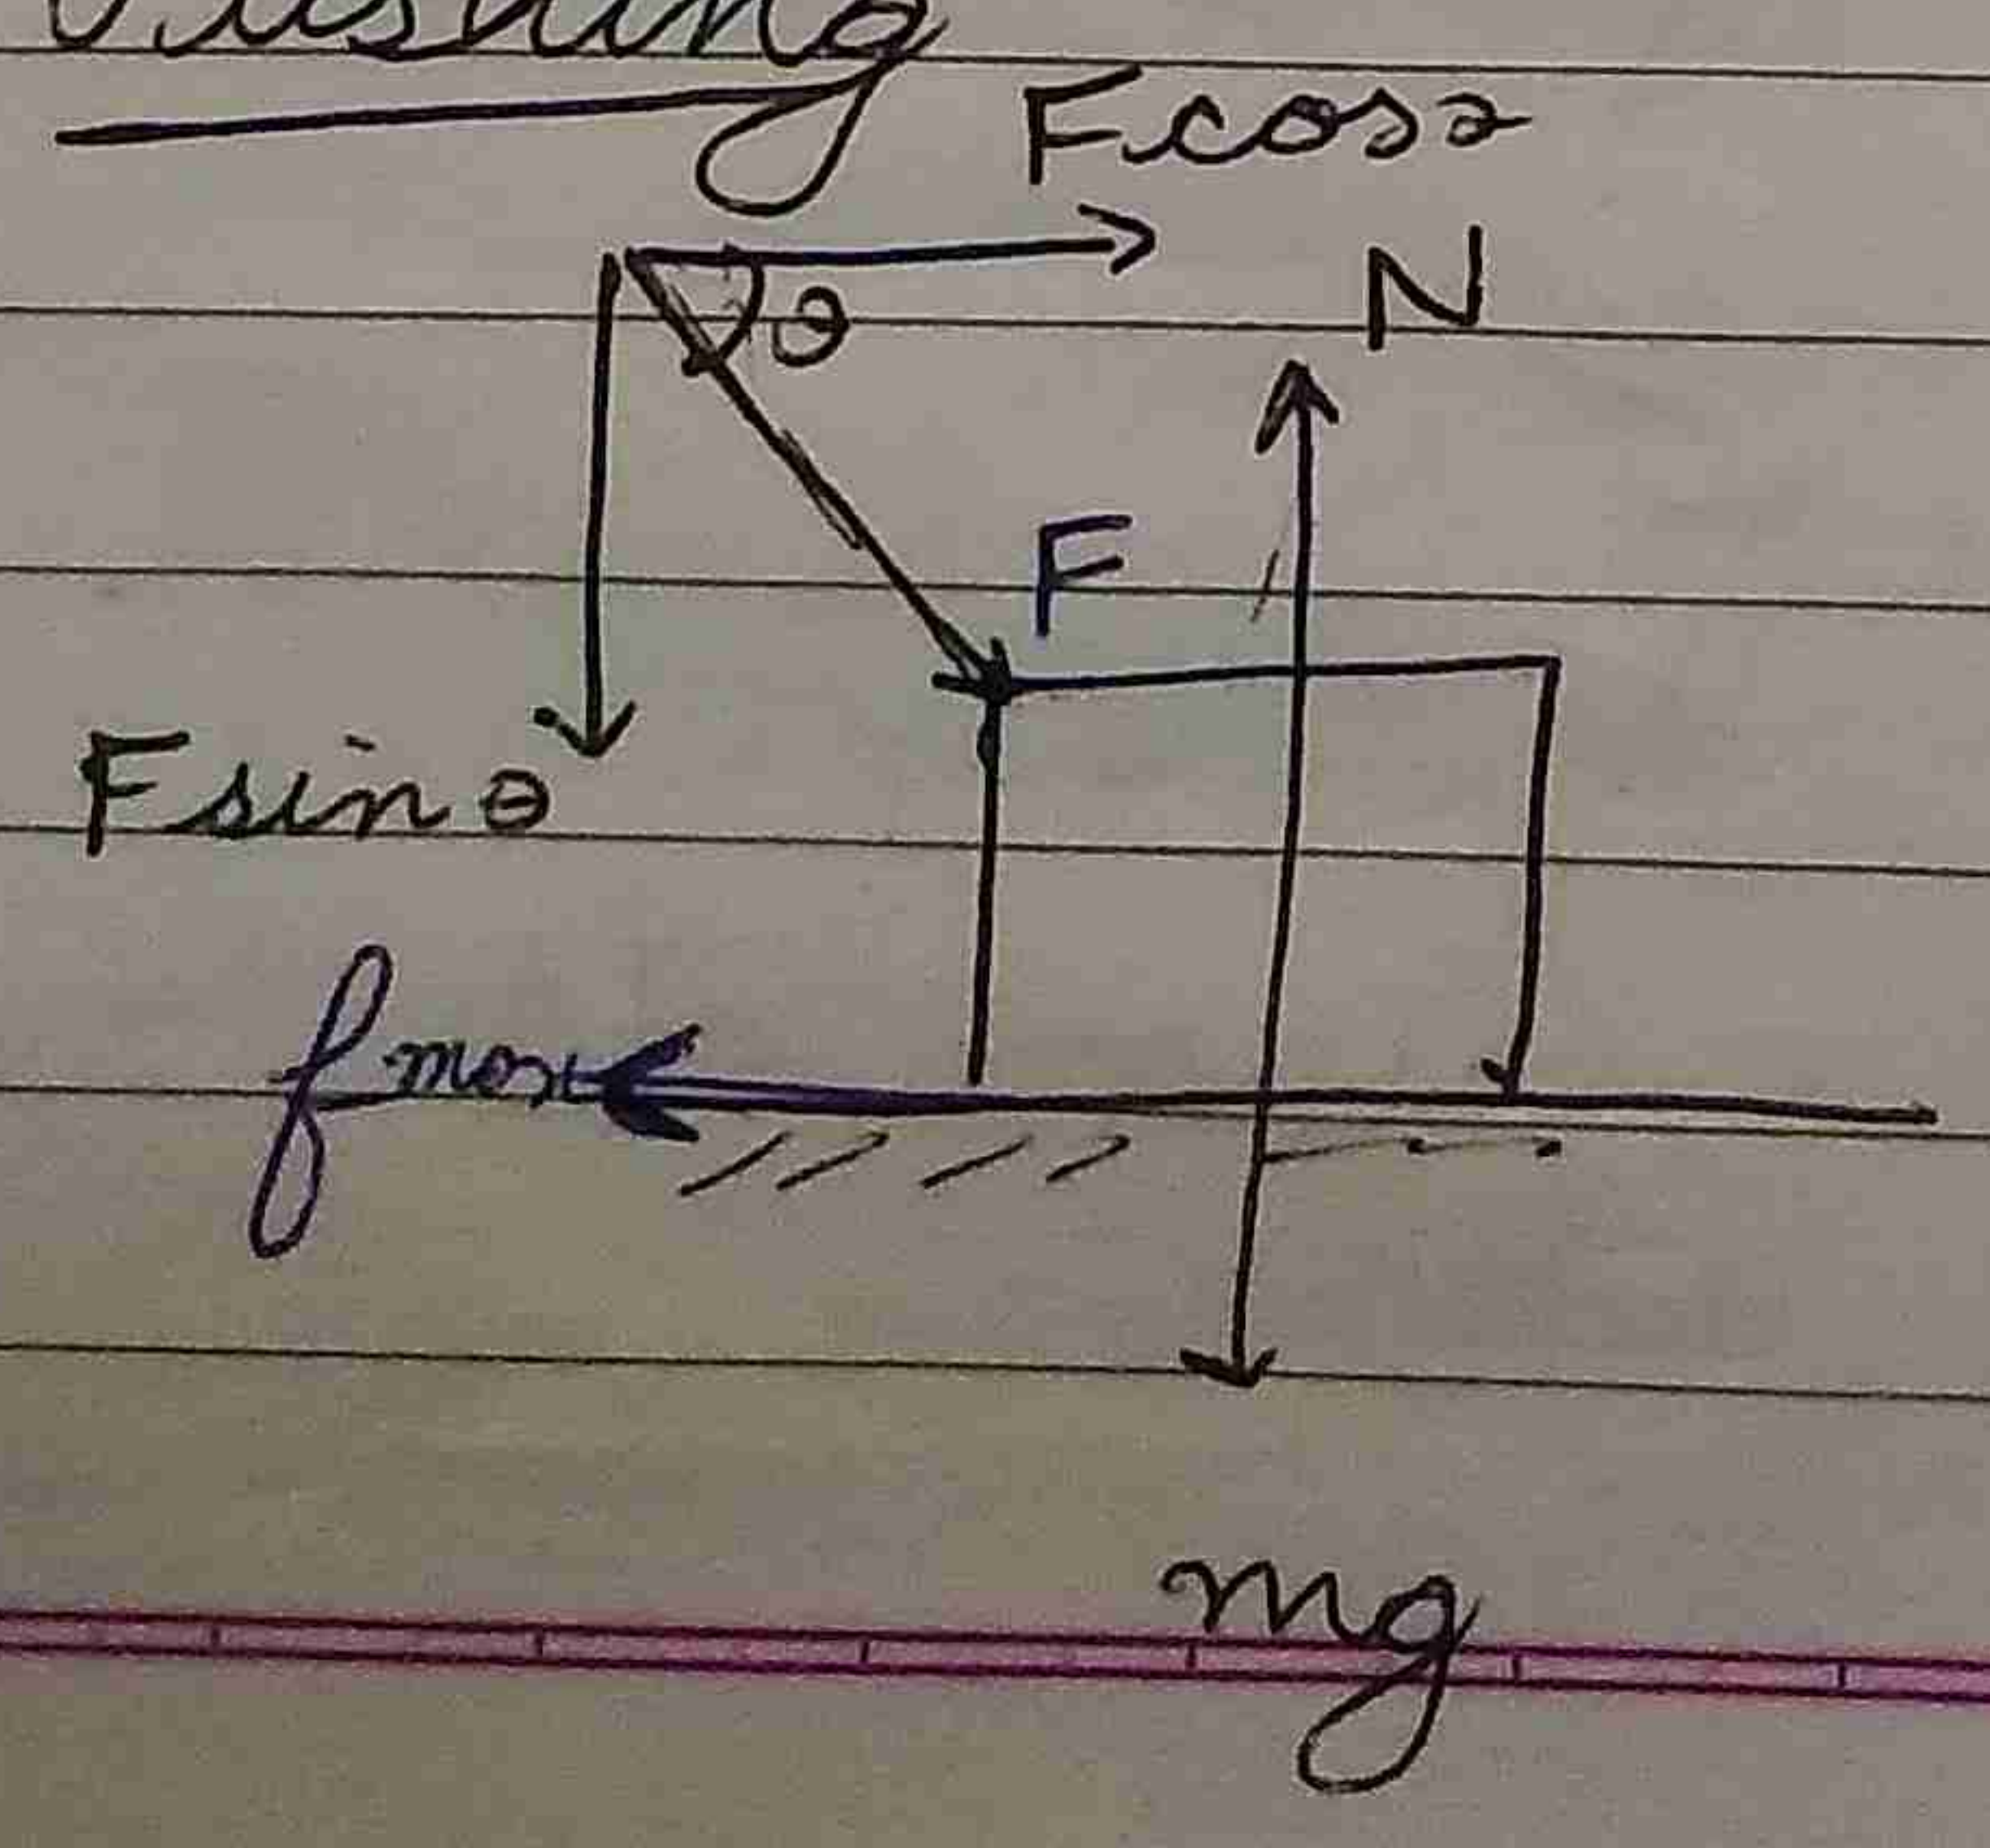 Pushing
Fcosθ
θ
N
F
Fsinθ
fmax
mg